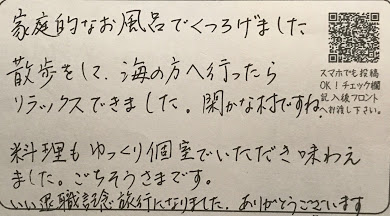 家庭的なお風呂でくつろげました
散歩をして、海の方へ行ったら
リラックスできました。閑かな村ですね。
料理もゆっくり個室でいただき味わえ
ました。ごちそうさまです。
いい退職記念旅行になりました。ありがとうございます
スマホでも投稿
OK!チェック欄
記入後フロント
へお渡し下さい。